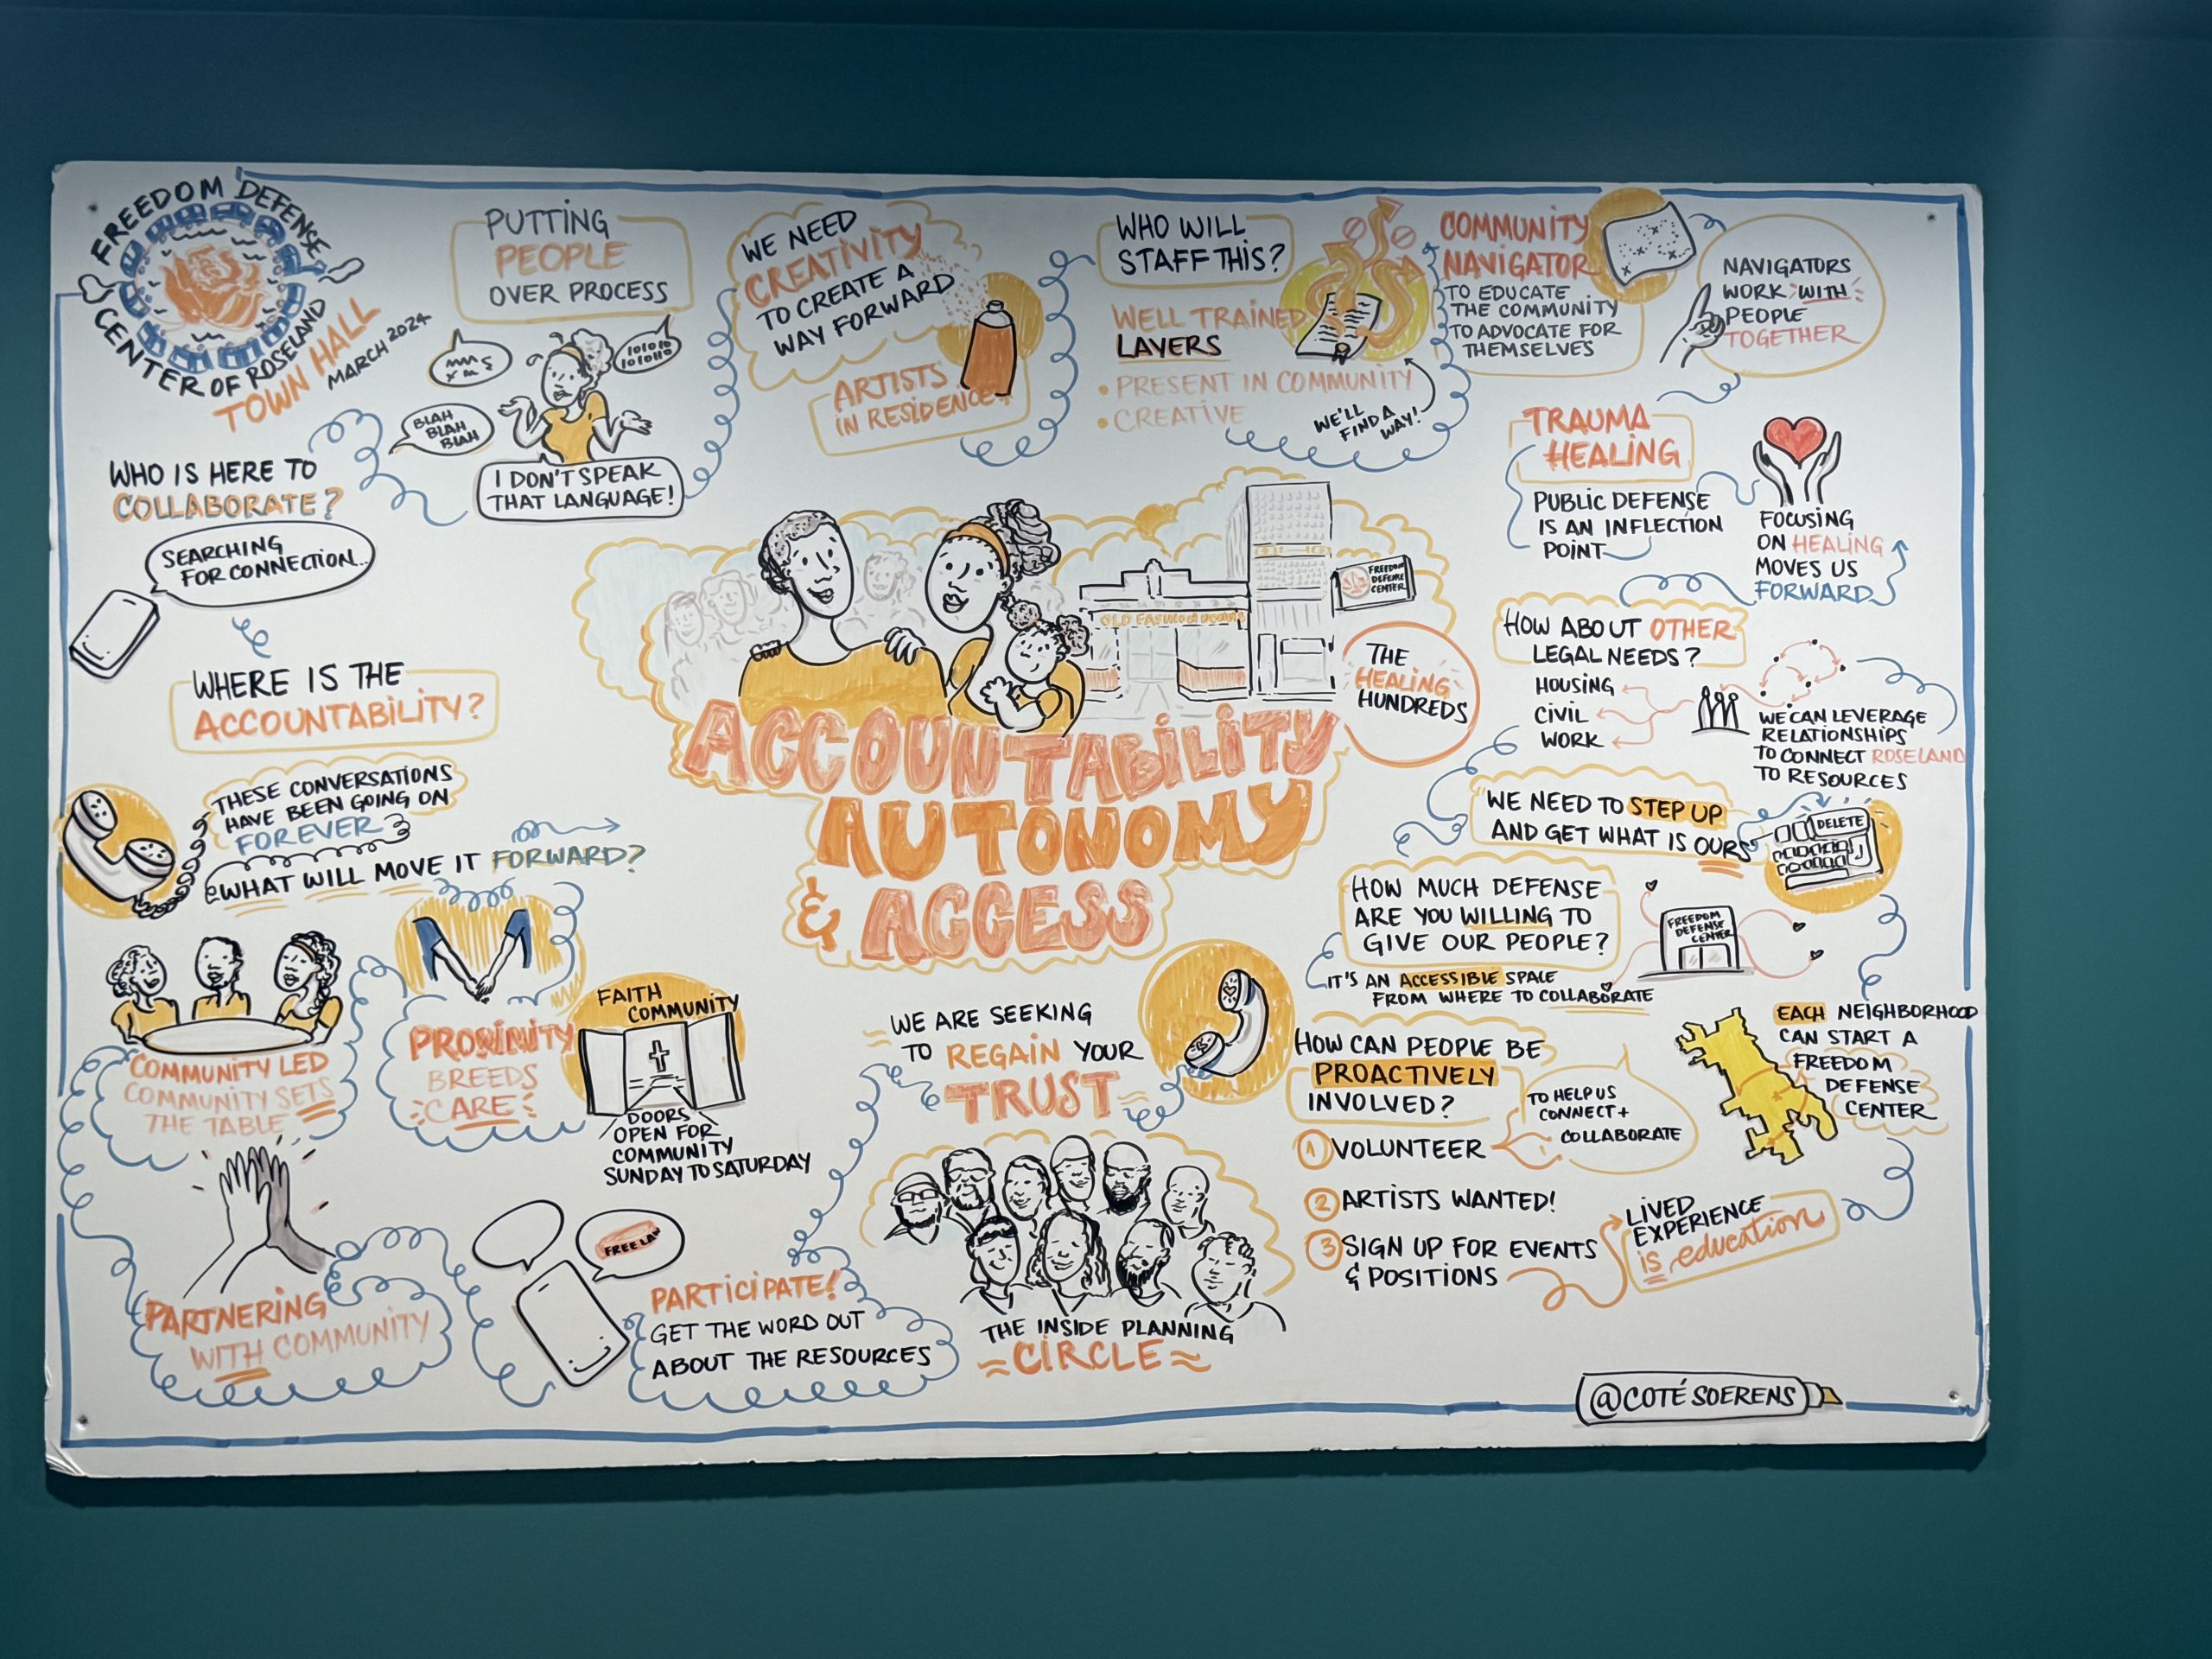 FREEDOM DEFENSE
CENTER OF ROSELAND
TOWN HALL
MARCH 2024
PUTTING
PEOPLE
OVER PROCESS
BLAH
BLAH
BLAH
1010101
101010
I DON'T SPEAK
THAT LANGUAGE!
WE NEED
CREATIVITY
TO CREATE A
WAY FORWARD
ARTISTS
IN RESIDENCE
WHO WILL
STAFF THIS?
WELL TRAINED
LAYERS
• PRESENT IN COMMUNITY
• CREATIVE
WE'LL
FIND A
WAY!
COMMUNITY
NAVIGATOR
TO EDUCATE
THE COMMUNITY
TO ADVOCATE FOR
THEMSELVES
NAVIGATORS
WORK WITH
PEOPLE
TOGETHER
TRAUMA
HEALING
PUBLIC DEFENSE
IS AN INFLECTION
POINT
FOCUSING
ON HEALING
MOVES US
FORWARD
WHO IS HERE TO
COLLABORATE?
SEARCHING
FOR CONNECTION...
WHERE IS THE
ACCOUNTABILITY?
THESE CONVERSATIONS
HAVE BEEN GOING ON
FOREVER
WHAT WILL MOVE IT FORWARD?
OLD FASHION DONUTS
FREEDOM
DEFENSE
CENTER
THE
HEALING
HUNDREDS
ACCOUNTABILITY
AUTONOMY
& ACCESS
HOW ABOUT OTHER
LEGAL NEEDS?
HOUSING
CIVIL
WORK
WE CAN LEVERAGE
RELATIONSHIPS
TO CONNECT ROSELAND
TO RESOURCES
WE NEED TO STEP UP
AND GET WHAT IS OURS
DELETE
HOW MUCH DEFENSE
ARE YOU WILLING TO
GIVE OUR PEOPLE?
IT'S AN ACCESSIBLE SPACE
FROM WHERE TO COLLABORATE
FREEDOM
DEFENSE
CENTER
EACH NEIGHBORHOOD
CAN START A
FREEDOM
DEFENSE
CENTER
COMMUNITY LED
COMMUNITY SETS
THE TABLE
PROXIMITY
BREEDS
CARE
FAITH
COMMUNITY
DOORS
OPEN FOR
COMMUNITY
SUNDAY TO SATURDAY
WE ARE SEEKING
TO REGAIN YOUR
TRUST
HOW CAN PEOPLE BE
PROACTIVELY
INVOLVED?
TO HELP US
CONNECT +
COLLABORATE
1 VOLUNTEER
2 ARTISTS WANTED!
3 SIGN UP FOR EVENTS
& POSITIONS
LIVED
EXPERIENCE
IS education
PARTNERING
WITH COMMUNITY
FREE LAW
PARTICIPATE!
GET THE WORD OUT
ABOUT THE RESOURCES
THE INSIDE PLANNING
CIRCLE
@COTÉSOERENS